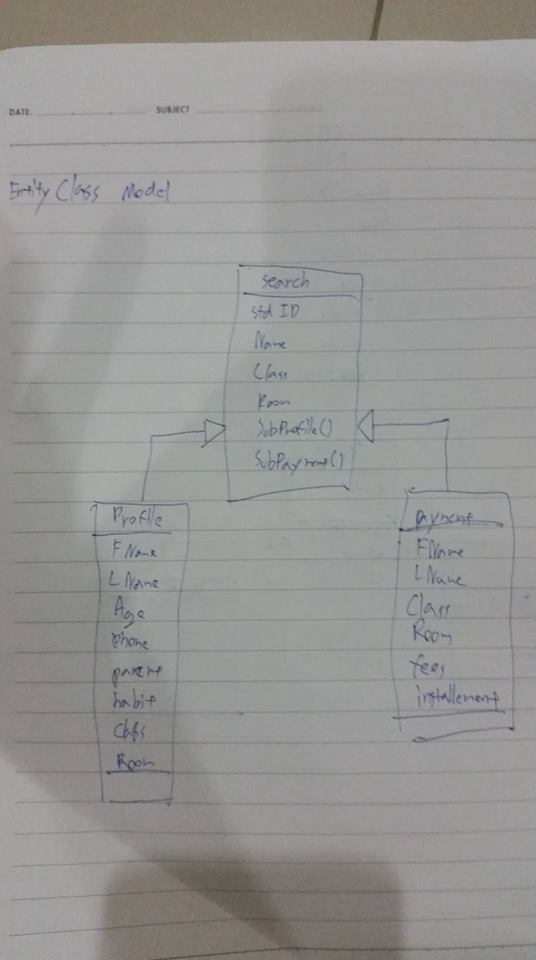 DATE
SUBJECT
Entity Class Model
search
std ID
Name
Class
Room
SubProfile()
SubPayment()
Profile
F Name
L Name
Age
phone
parent
habit
Class
Room
payment
FName
LName
Class
Room
fees
installement